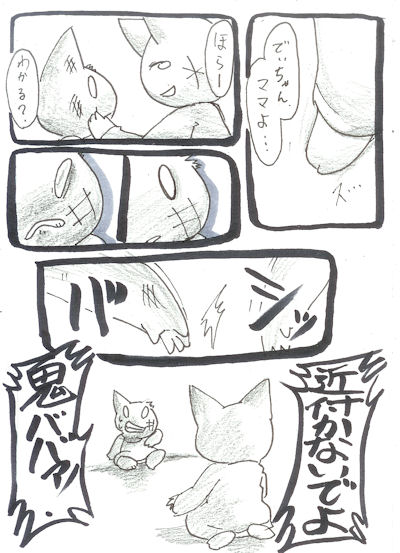 でぃちゃん
ママよ…
ズ…
ほらー
わかる?
バシッ
近付かないでよ
鬼ババァ!